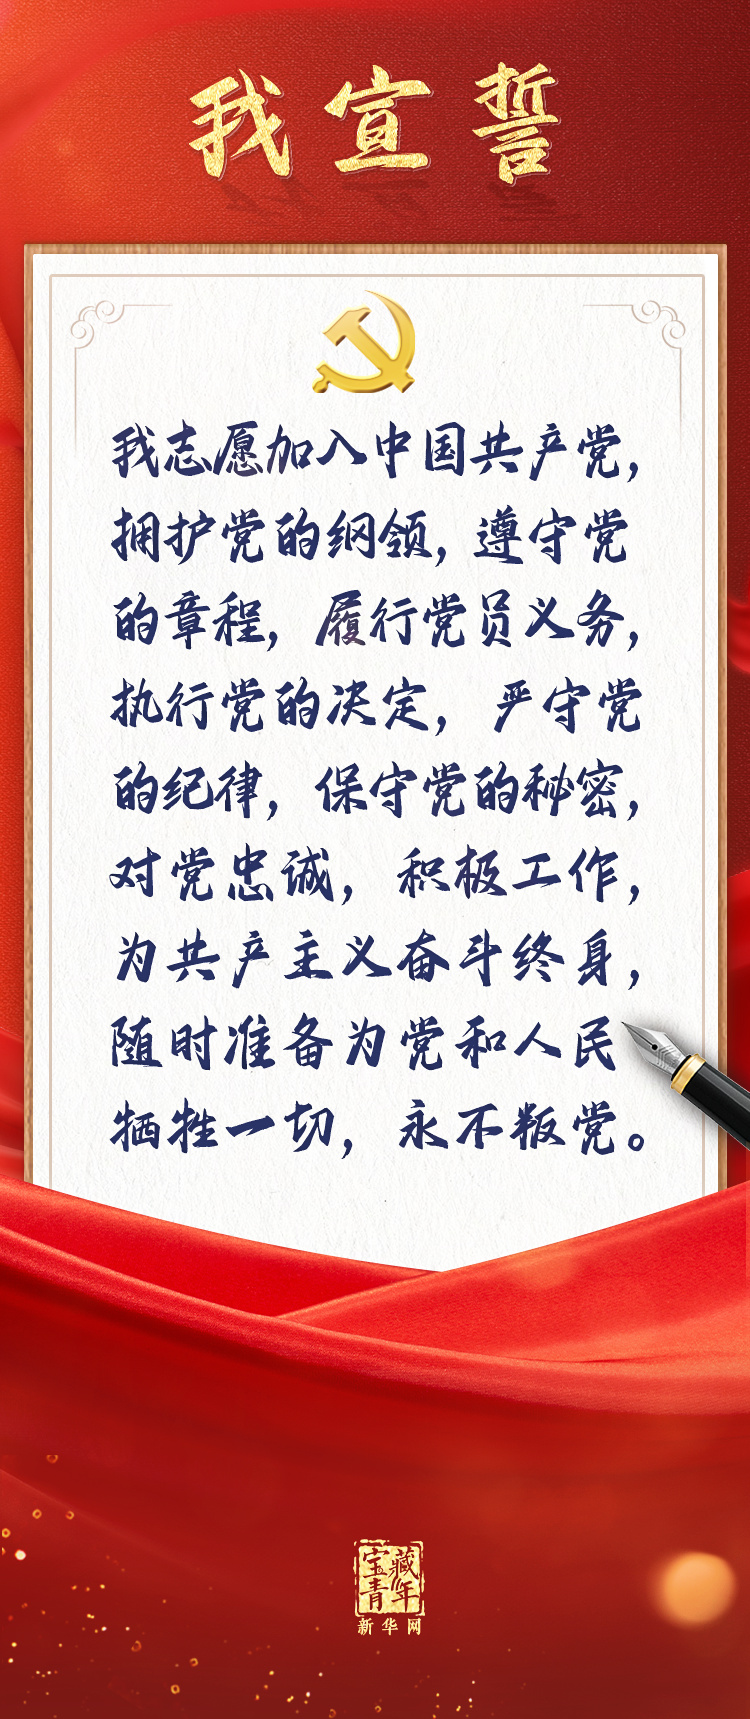 我宣誓
我志愿加入中国共产党，
拥护党的纲领，遵守党
的章程，履行党员义务，
执行党的决定，严守党
的纪律，保守党的秘密，
对党忠诚，积极工作，
为共产主义奋斗终身，
随时准备为党和人民
牺牲一切，永不叛党。
宝藏
青年
新华网